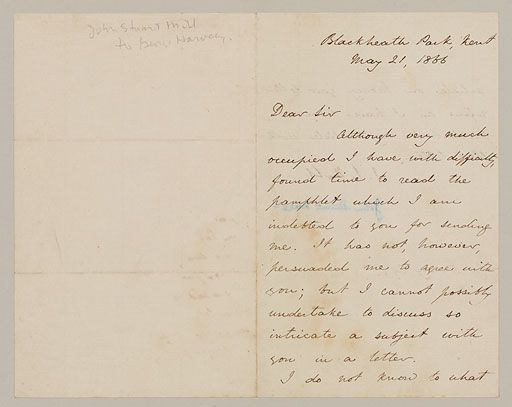 John Stuart Mill
to George Harvey.
Blackheath Park, Kent
May 21, 1866
Dear Sir
Although very much
occupied I have, with difficulty,
found time to read the
pamphlet which I am
indebted to you for sending
me. It has not, however,
persuaded me to agree with
you; but I cannot possibly
undertake to discuss so
intricate a subject with
you in a letter.
I do not know to what